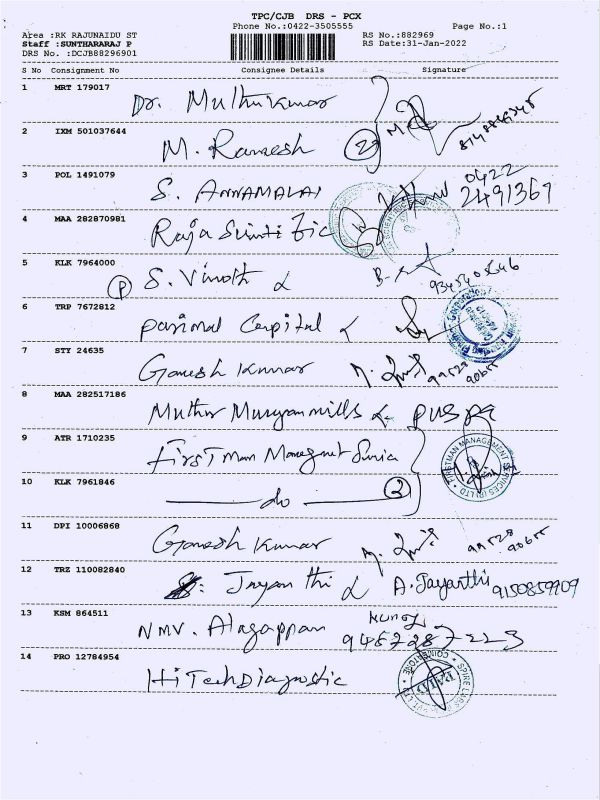 TPC/CJB DRS - PCX
Phone No.:0422-3505555 Page No.:1
Area :RK RAJUNAIDU ST RS No.:882969
Staff :SUNTHARARAJ P RS Date:31-Jan-2022
DRS No. :DCJB88296901
S No Consignment No Consignee Details Signature
1 MRT 179017 Dr. Muthukumar
2 IXM 501037644 M. Ramesh 2
3 POL 1491079 S. ANNAMALAI 0422
2491367
4 MAA 282870981 Raja
5 KLK 7964000 P S. Vinoth
6 TRP 7672812 Parimal Capital
7 STY 24635 Ganesh Kumar 99528
90655
8 MAA 282517186 Muthu Murugan mills
9 ATR 1710235 First man
10 KLK 7961846 do 2
11 DPI 10006868 Ganesh Kumar 99528
90655
12 TRZ 110082840 Jayanthi A. Jayanthi 9150859909
13 KSM 864511 NMV. Alagappan
14 PRO 12784954 HiTech Diagnostic